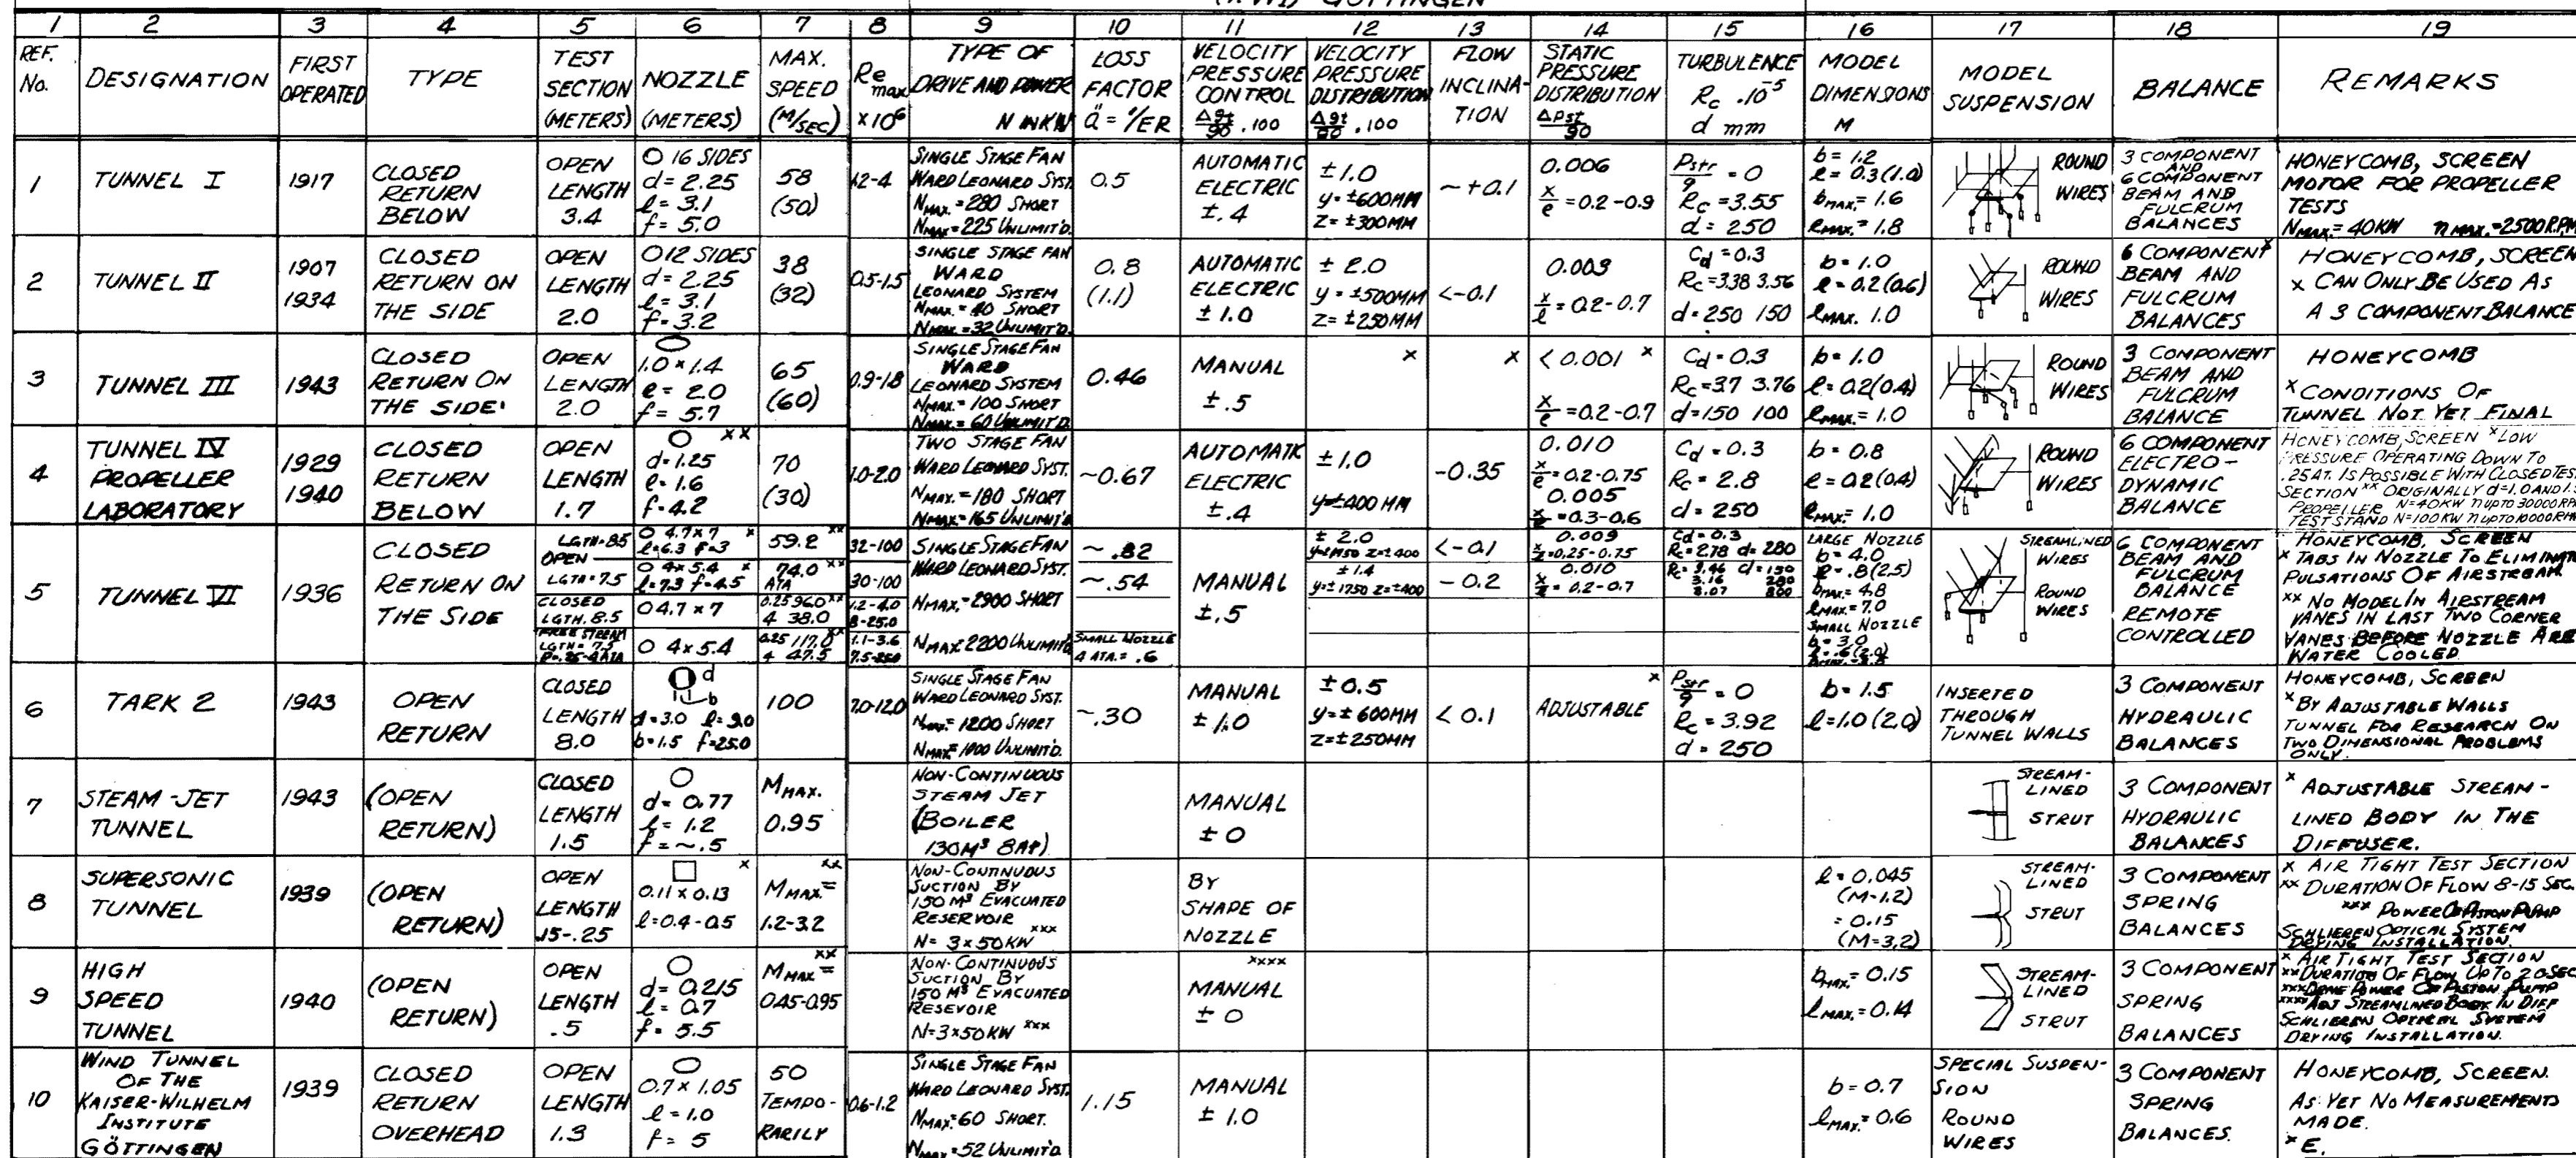 (KWI) GÖTTINGEN
1 2 3 4 5 6 7 8 9 10 11 12 13 14 15 16 17 18 19
REF. No.
DESIGNATION
FIRST OPERATED
TYPE
TEST SECTION (METERS)
NOZZLE (METERS)
MAX. SPEED (M/SEC)
Re max x10⁶
TYPE OF DRIVE AND POWER N IN KW
LOSS FACTOR ä = 1/ER
VELOCITY PRESSURE CONTROL
VELOCITY PRESSURE DISTRIBUTION
FLOW INCLINATION
STATIC PRESSURE DISTRIBUTION
TURBULENCE Rc .10⁻⁵ d mm
MODEL DIMENSIONS M
MODEL SUSPENSION
BALANCE
REMARKS
1
TUNNEL I
1917
CLOSED RETURN BELOW
OPEN LENGTH 3.4
16 SIDES d=2.25 l=3.1 f=5.0
58 (50)
1.2-4
SINGLE STAGE FAN WARD LEONARD SYST. NMAX.=280 SHORT NMAX=225 UNLIMIT'D.
0.5
AUTOMATIC ELECTRIC ±.4
±1.0 y=±600MM z=±300MM
~+0.1
0.006 x/e=0.2-0.9
Pstr/q=0 Rc=3.55 d=250
b=1.2 l=0.3(1.0) bMAX.=1.6 lMAX.=1.8
ROUND WIRES
3 COMPONENT AND 6 COMPONENT BEAM AND FULCRUM BALANCES
HONEYCOMB, SCREEN MOTOR FOR PROPELLER TESTS NMAX.=40KW nMAX.=2500 R.P.M
2
TUNNEL II
1907 1934
CLOSED RETURN ON THE SIDE
OPEN LENGTH 2.0
12 SIDES d=2.25 l=3.1 f=3.2
38 (32)
0.5-1.5
SINGLE STAGE FAN WARD LEONARD SYSTEM NMAX.=40 SHORT NMAX.=32 UNLIMIT'D.
0.8 (1.1)
AUTOMATIC ELECTRIC ±1.0
±2.0 y=±500MM z=±250MM
<-0.1
0.003 x/l=0.2-0.7
Cd=0.3 Rc=3.38 3.56 d=250 150
b=1.0 l=0.2(0.6) lMAX. 1.0
ROUND WIRES
6 COMPONENT x BEAM AND FULCRUM BALANCES
HONEYCOMB, SCREEN x CAN ONLY BE USED AS A 3 COMPONENT BALANCE
3
TUNNEL III
1943
CLOSED RETURN ON THE SIDE
OPEN LENGTH 2.0
1.0 x 1.4 l=2.0 f=5.7
65 (60)
0.9-1.8
SINGLE STAGE FAN WARD LEONARD SYSTEM NMAX.=100 SHORT NMAX.=60 UNLIMIT'D.
0.46
MANUAL ±.5
x
x
<0.001 x x/e=0.2-0.7
Cd=0.3 Rc=3.7 3.76 d=150 100
b=1.0 l=0.2(0.4) lMAX.=1.0
ROUND WIRES
3 COMPONENT BEAM AND FULCRUM BALANCE
HONEYCOMB x CONDITIONS OF TUNNEL NOT YET FINAL
4
TUNNEL IV PROPELLER LABORATORY
1929 1940
CLOSED RETURN BELOW
OPEN LENGTH 1.7
xx d=1.25 l=1.6 f=4.2
70 (30)
1.0-2.0
TWO STAGE FAN WARD LEONARD SYST. NMAX.=180 SHORT NMAX=165 UNLIMIT'D
~0.67
AUTOMATIK ELECTRIC ±.4
±1.0 y=±400 MM
-0.35
0.010 x/e=0.2-0.75 0.005 x/e=0.3-0.6
Cd=0.3 Rc=2.8 d=250
b=0.8 l=0.2(0.4) lMAX.=1.0
ROUND WIRES
6 COMPONENT ELECTRO-DYNAMIC BALANCE
HONEYCOMB, SCREEN x LOW PRESSURE OPERATING DOWN TO .25AT. IS POSSIBLE WITH CLOSED TEST SECTION xx ORIGINALLY d=1.0 AND PROPELLER N=40KW n UP TO 30000 RPM TEST STAND N=100KW n UP TO 10000 RPM
5
TUNNEL VI
1936
CLOSED RETURN ON THE SIDE
LGTH=8.5 OPEN LGTH=7.5 CLOSED LGTH. 8.5 FREE STREAM LGTH=7.5 P=.25-4 ATA
4.7x7 x l=6.3 f=3
4x5.4 x l=7.3 f=4.5
4.7x7
4x5.4
59.2 xx
74.0 xx ATA
0.25 96.0 xx 4 38.0
0.25 117.0 xx 4 47.5
32-100
30-100
1.2-4.0 8-25.0
1.1-3.6 7.5-25.0
SINGLE STAGE FAN WARD LEONARD SYST. NMAX.=2900 SHORT NMAX 2200 UNLIMIT'D
~.82
~.54
SMALL NOZZLE 4 ATA.=.6
MANUAL ±.5
±2.0 z=±400
±1.4 y=±1750 z=±400
<-0.1
-0.2
0.009 x/e=0.25-0.75
0.010 x/e=0.2-0.7
Cd=0.3 Rc=2.78 d=280
Rc=3.46 d=150 3.16 280 3.07
LARGE NOZZLE b=4.0 l=.8(2.5) bMAX=4.8 lMAX.=7.0 SMALL NOZZLE b=3.0 l=.6(2.0)
STREAMLINED WIRES ROUND WIRES
6 COMPONENT BEAM AND FULCRUM BALANCE REMOTE CONTROLLED
HONEYCOMB, SCREEN x TABS IN NOZZLE TO ELIMINATE PULSATIONS OF AIRSTREAM xx NO MODEL IN AIRSTREAM VANES IN LAST TWO CORNER VANES BEFORE NOZZLE ARE WATER COOLED
6
TARK 2
1943
OPEN RETURN
CLOSED LENGTH 8.0
d b d=3.0 l=9.0 b=1.5 f=25.0
100
7.0-12.0
SINGLE STAGE FAN WARD LEONARD SYST. NMAX=1200 SHORT NMAX=1000 UNLIMIT'D.
~.30
MANUAL ±1.0
±0.5 y=±600MM z=±250MM
<0.1
x ADJUSTABLE
Pstr/q=0 Rc=3.92 d=250
b=1.5 l=1.0(2.0)
INSERTED THROUGH TUNNEL WALLS
3 COMPONENT HYDRAULIC BALANCES
HONEYCOMB, SCREEN x BY ADJUSTABLE WALLS TUNNEL FOR RESEARCH ON TWO DIMENSIONAL PROBLEMS ONLY.
7
STEAM-JET TUNNEL
1943
(OPEN RETURN)
CLOSED LENGTH 1.5
d=0.77 l=1.2 f=~.5
MMAX. 0.95
NON-CONTINUOUS STEAM JET (BOILER 130M³ 8At)
MANUAL ±0
STREAM-LINED STRUT
3 COMPONENT HYDRAULIC BALANCES
x ADJUSTABLE STREAM-LINED BODY IN THE DIFFUSER.
8
SUPERSONIC TUNNEL
1939
(OPEN RETURN)
OPEN LENGTH .15-.25
x 0.11 x 0.13 l=0.4-0.5
xx MMAX.= 1.2-3.2
NON-CONTINUOUS SUCTION BY 150 M³ EVACUATED RESERVOIR N=3x50KW xxx
BY SHAPE OF NOZZLE
l=0.045 (M=1.2) =0.15 (M=3.2)
STREAM-LINED STRUT
3 COMPONENT SPRING BALANCES
x AIR TIGHT TEST SECTION xx DURATION OF FLOW 8-15 SEC. xxx POWER OF PISTON PUMP SCHLIEREN OPTICAL SYSTEM DRYING INSTALLATION.
9
HIGH SPEED TUNNEL
1940
(OPEN RETURN)
OPEN LENGTH .5
d=0.215 l=0.7 f=5.5
xx MMAX= 0.45-0.95
NON-CONTINUOUS SUCTION BY 150 M³ EVACUATED RESEVOIR N=3x50KW xxx
xxxx MANUAL ±0
bMAX.=0.15 lMAX.=0.14
STREAM-LINED STRUT
3 COMPONENT SPRING BALANCES
x AIR TIGHT TEST SECTION xx DURATION OF FLOW UP TO 20 SEC xxx POWER OF PISTON PUMP xxxx ADJ STREAMLINED BODY IN DIFF SCHLIEREN OPTICAL SYSTEM DRYING INSTALLATION.
10
WIND TUNNEL OF THE KAISER-WILHELM INSTITUTE GÖTTINGEN
1939
CLOSED RETURN OVERHEAD
OPEN LENGTH 1.3
0.7 x 1.05 l=1.0 f=5
50 TEMPO-RARILY
0.6-1.2
SINGLE STAGE FAN WARD LEONARD SYST. NMAX.=60 SHORT. NMAX.=52 UNLIMIT'D.
1.15
MANUAL ±1.0
b=0.7 lMAX.=0.6
SPECIAL SUSPEN-SION ROUND WIRES
3 COMPONENT SPRING BALANCES.
HONEYCOMB, SCREEN. AS YET NO MEASUREMENTS MADE. x E.